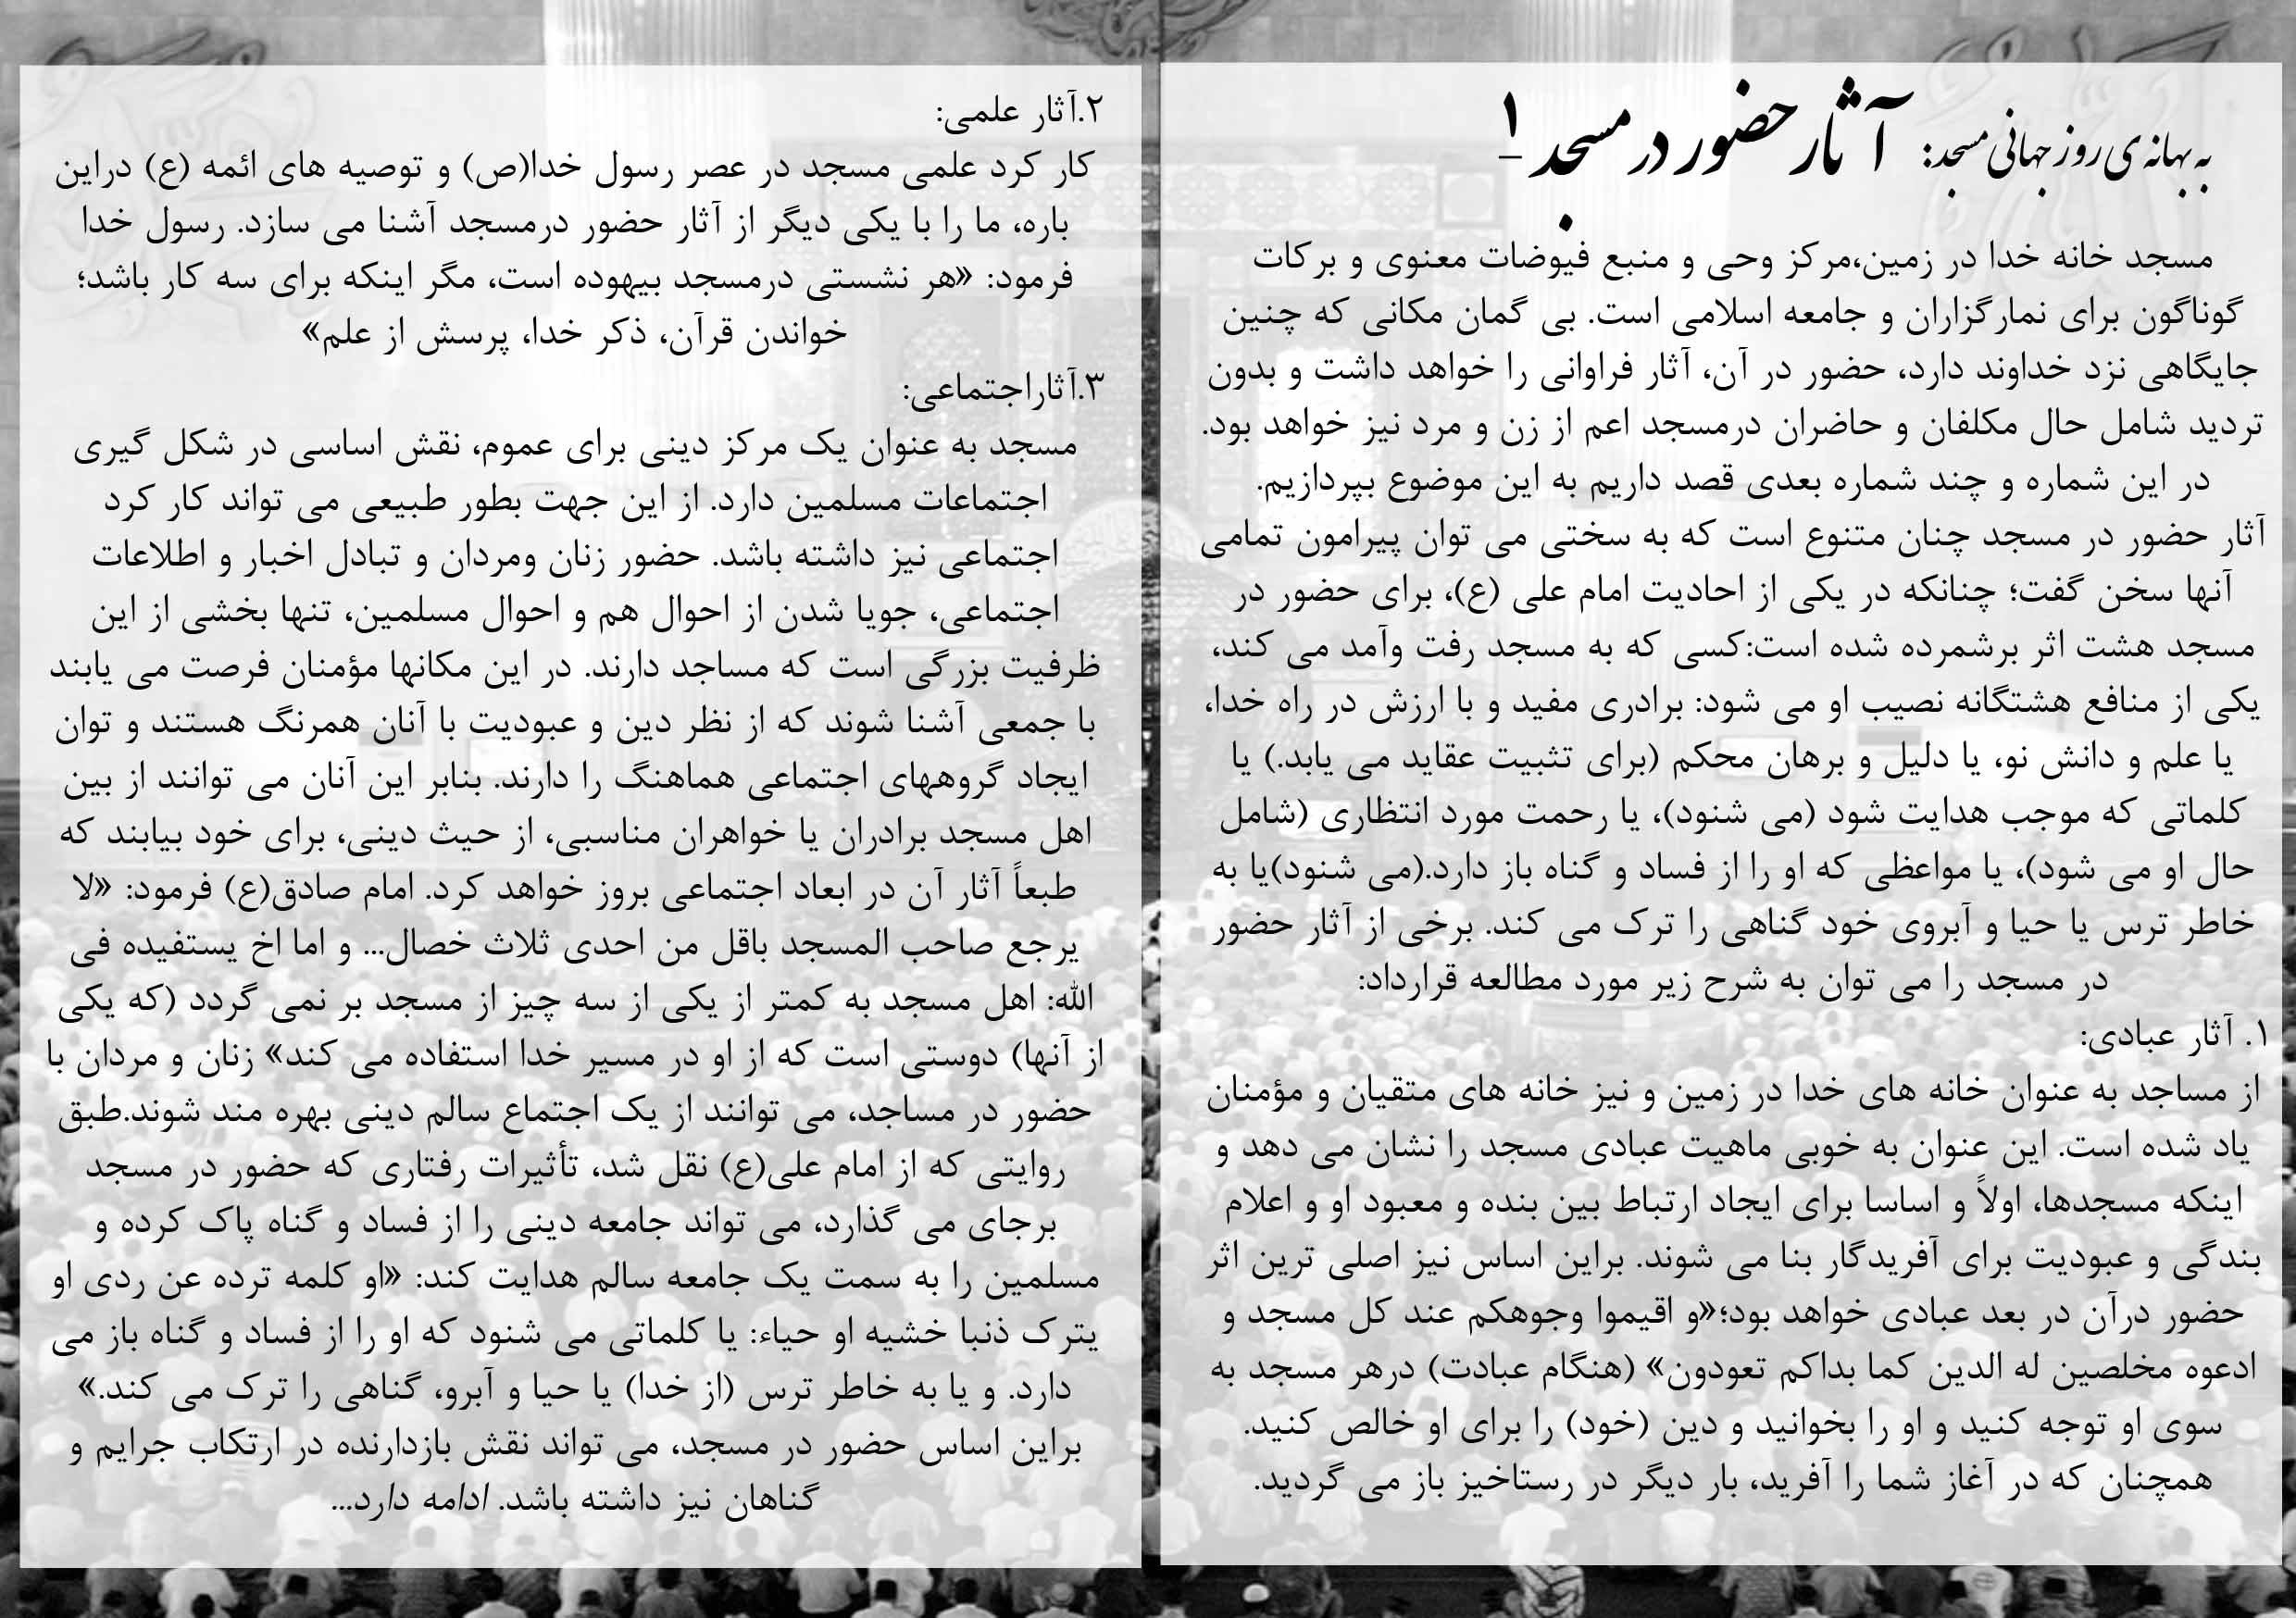 به بهانه ی روز جهانی مسجد: آثار حضور در مسجد - ۱
مسجد خانه خدا در زمین،مرکز وحی و منبع فیوضات معنوی و برکات
گوناگون برای نمارگزاران و جامعه اسلامی است. بی گمان مکانی که چنین
جایگاهی نزد خداوند دارد، حضور در آن، آثار فراوانی را خواهد داشت و بدون
تردید شامل حال مکلفان و حاضران درمسجد اعم از زن و مرد نیز خواهد بود.
در این شماره و چند شماره بعدی قصد داریم به این موضوع بپردازیم.
آثار حضور در مسجد چنان متنوع است که به سختی می توان پیرامون تمامی
آنها سخن گفت؛ چنانکه در یکی از احادیت امام علی (ع)، برای حضور در
مسجد هشت اثر برشمرده شده است:کسی که به مسجد رفت وآمد می کند،
یکی از منافع هشتگانه نصیب او می شود: برادری مفید و با ارزش در راه خدا،
یا علم و دانش نو، یا دلیل و برهان محکم (برای تثبیت عقاید می یابد.) یا
کلماتی که موجب هدایت شود (می شنود)، یا رحمت مورد انتظاری (شامل
حال او می شود)، یا مواعظی که او را از فساد و گناه باز دارد.(می شنود)یا به
خاطر ترس یا حیا و آبروی خود گناهی را ترک می کند. برخی از آثار حضور
در مسجد را می توان به شرح زیر مورد مطالعه قرارداد:
۱. آثار عبادی:
از مساجد به عنوان خانه های خدا در زمین و نیز خانه های متقیان و مؤمنان
یاد شده است. این عنوان به خوبی ماهیت عبادی مسجد را نشان می دهد و
اینکه مسجدها، اولاً و اساسا برای ایجاد ارتباط بین بنده و معبود او و اعلام
بندگی و عبودیت برای آفریدگار بنا می شوند. براین اساس نیز اصلی ترین اثر
حضور درآن در بعد عبادی خواهد بود؛«و اقیموا وجوهکم عند کل مسجد و
ادعوه مخلصین له الدین کما بداکم تعودون» (هنگام عبادت) درهر مسجد به
سوی او توجه کنید و او را بخوانید و دین (خود) را برای او خالص کنید.
همچنان که در آغاز شما را آفرید، بار دیگر در رستاخیز باز می گردید.
۲.آثار علمی:
کار کرد علمی مسجد در عصر رسول خدا(ص) و توصیه های ائمه (ع) دراین
باره، ما را با یکی دیگر از آثار حضور درمسجد آشنا می سازد. رسول خدا
فرمود: «هر نشستی درمسجد بیهوده است، مگر اینکه برای سه کار باشد؛
خواندن قرآن، ذکر خدا، پرسش از علم»
۳.آثاراجتماعی:
مسجد به عنوان یک مرکز دینی برای عموم، نقش اساسی در شکل گیری
اجتماعات مسلمین دارد. از این جهت بطور طبیعی می تواند کار کرد
اجتماعی نیز داشته باشد. حضور زنان ومردان و تبادل اخبار و اطلاعات
اجتماعی، جویا شدن از احوال هم و احوال مسلمین، تنها بخشی از این
ظرفیت بزرگی است که مساجد دارند. در این مکانها مؤمنان فرصت می یابند
با جمعی آشنا شوند که از نظر دین و عبودیت با آنان همرنگ هستند و توان
ایجاد گروههای اجتماعی هماهنگ را دارند. بنابر این آنان می توانند از بین
اهل مسجد برادران یا خواهران مناسبی، از حیث دینی، برای خود بیابند که
طبعاً آثار آن در ابعاد اجتماعی بروز خواهد کرد. امام صادق(ع) فرمود: «لا
یرجع صاحب المسجد باقل من احدی ثلاث خصال... و اما اخ یستفیده فی
الله: اهل مسجد به کمتر از یکی از سه چیز از مسجد بر نمی گردد (که یکی
از آنها) دوستی است که از او در مسیر خدا استفاده می کند» زنان و مردان با
حضور در مساجد، می توانند از یک اجتماع سالم دینی بهره مند شوند.طبق
روایتی که از امام علی(ع) نقل شد، تأثیرات رفتاری که حضور در مسجد
برجای می گذارد، می تواند جامعه دینی را از فساد و گناه پاک کرده و
مسلمین را به سمت یک جامعه سالم هدایت کند: «او کلمه ترده عن ردی او
یترک ذنبا خشیه او حیاء: یا کلماتی می شنود که او را از فساد و گناه باز می
دارد. و یا به خاطر ترس (از خدا) یا حیا و آبرو، گناهی را ترک می کند.»
براین اساس حضور در مسجد، می تواند نقش بازدارنده در ارتکاب جرایم و
گناهان نیز داشته باشد. ادامه دارد...